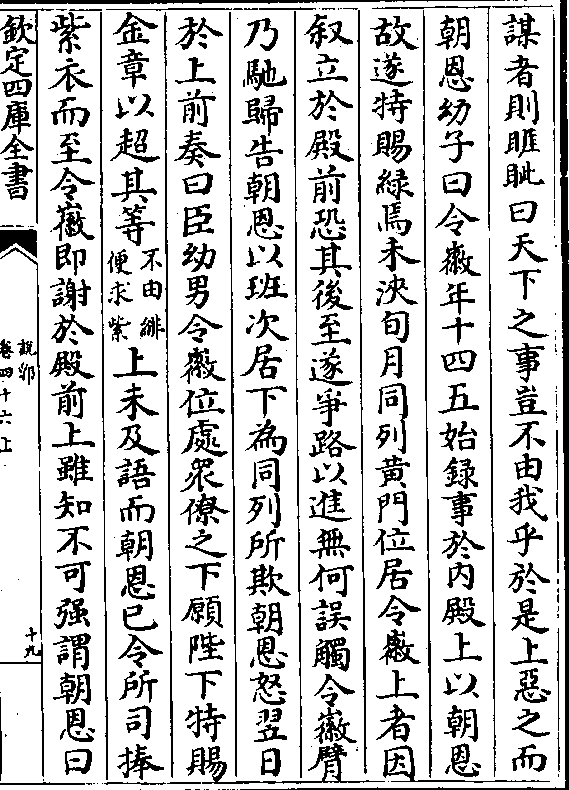 謀者則睚眦曰天下之事豈不由我乎於是上惡之而
朝恩幼子曰令徽年十四五始録事於内殿上以朝恩
故遂特賜緑焉未浹旬月同列黄門位居令徽上者因
叙立於殿前恐其後至遂爭路以進無何誤觸令徽臂
乃馳歸告朝恩以班次居下為同列所欺朝恩怒翌日
於上前奏曰臣幼男令徽位處衆僚之下願陛下特賜
金章以超其等不由緋便求紫上未及語而朝恩已令所司捧
紫衣而至令徽即謝於殿前上雖知不可强謂朝恩曰
欽定四庫全書
説郛
卷四十六上
十九